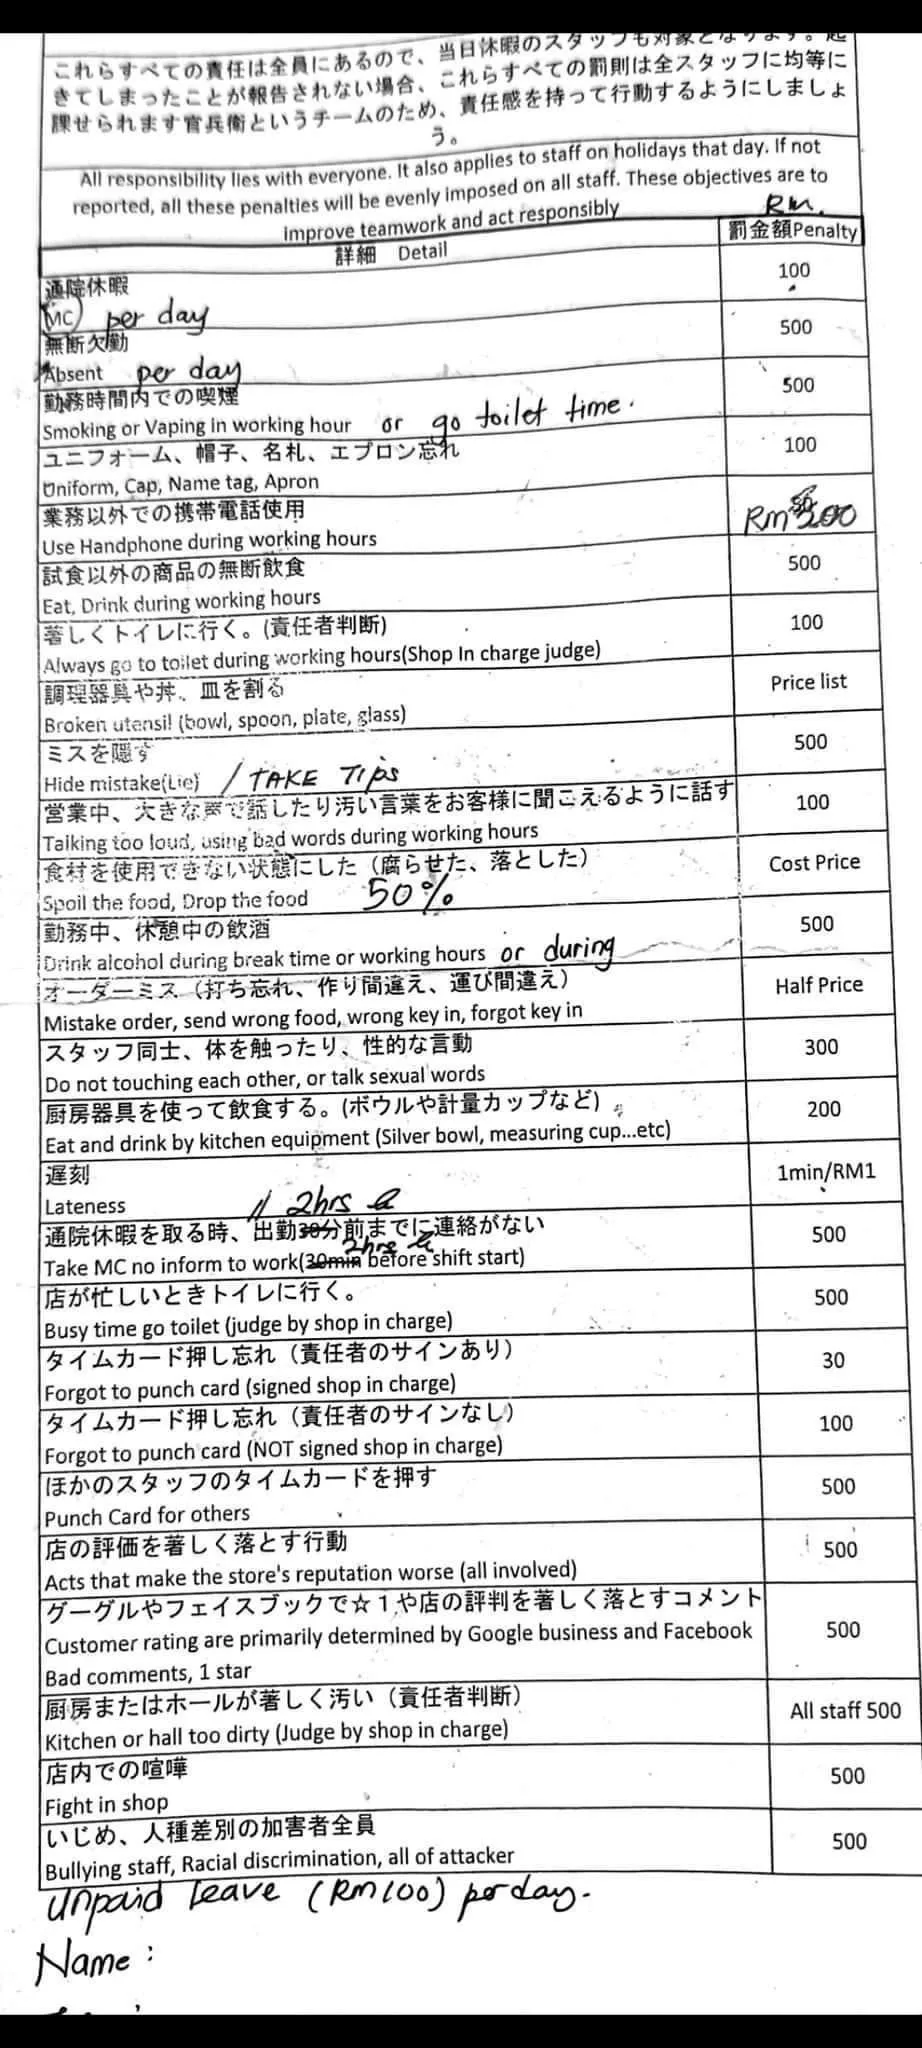 これらすべての責任は全員にあるので、当日休暇のスタッフも対象となります。起
きてしまったことが報告されない場合、これらすべての罰則は全スタッフに均等に
課せられます官兵衛というチームのため、責任感を持って行動するようにしましょ
う。
All responsibility lies with everyone. It also applies to staff on holidays that day. If not
reported, all these penalties will be evenly imposed on all staff. These objectives are to
improve teamwork and act responsibly
Rm.
詳細 Detail 罰金額Penalty
通院休暇
MC per day 100
無断欠勤
Absent per day 500
勤務時間内での喫煙
Smoking or Vaping in working hour or go toilet time. 500
ユニフォーム、帽子、名札、エプロン忘れ
Uniform, Cap, Name tag, Apron 100
業務以外での携帯電話使用
Use Handphone during working hours Rm 200
試食以外の商品の無断飲食
Eat, Drink during working hours 500
著しくトイレに行く。(責任者判断)
Always go to toilet during working hours(Shop In charge judge) 100
調理器具や丼、皿を割る
Broken utensil (bowl, spoon, plate, glass) Price list
ミスを隠す
Hide mistake(Lie) / TAKE Tips 500
営業中、大きな声で話したり汚い言葉をお客様に聞こえるように話す
Talking too loud, using bad words during working hours 100
食材を使用できない状態にした（腐らせた、落とした）
Spoil the food, Drop the food 50% Cost Price
勤務中、休憩中の飲酒
Drink alcohol during break time or working hours or during 500
オーダーミス（打ち忘れ、作り間違え、運び間違え）
Mistake order, send wrong food, wrong key in, forgot key in Half Price
スタッフ同士、体を触ったり、性的な言動
Do not touching each other, or talk sexual words 300
厨房器具を使って飲食する。(ボウルや計量カップなど)
Eat and drink by kitchen equipment (Silver bowl, measuring cup...etc) 200
遅刻
Lateness 1min/RM1
2hrs
通院休暇を取る時、出勤30分前までに連絡がない
2hrs
Take MC no inform to work(30min before shift start) 500
店が忙しいときトイレに行く。
Busy time go toilet (judge by shop in charge) 500
タイムカード押し忘れ（責任者のサインあり）
Forgot to punch card (signed shop in charge) 30
タイムカード押し忘れ（責任者のサインなし）
Forgot to punch card (NOT signed shop in charge) 100
ほかのスタッフのタイムカードを押す
Punch Card for others 500
店の評価を著しく落とす行動
Acts that make the store's reputation worse (all involved) 500
グーグルやフェイスブックで☆１や店の評判を著しく落とすコメント
Customer rating are primarily determined by Google business and Facebook 500
Bad comments, 1 star
厨房またはホールが著しく汚い（責任者判断）
Kitchen or hall too dirty (Judge by shop in charge) All staff 500
店内での喧嘩
Fight in shop 500
いじめ、人種差別の加害者全員
Bullying staff, Racial discrimination, all of attacker 500
Unpaid Leave (RM100) per day.
Name :